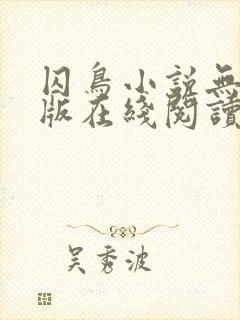 囚鳥小說無
版在綫閱讀
吴秀波